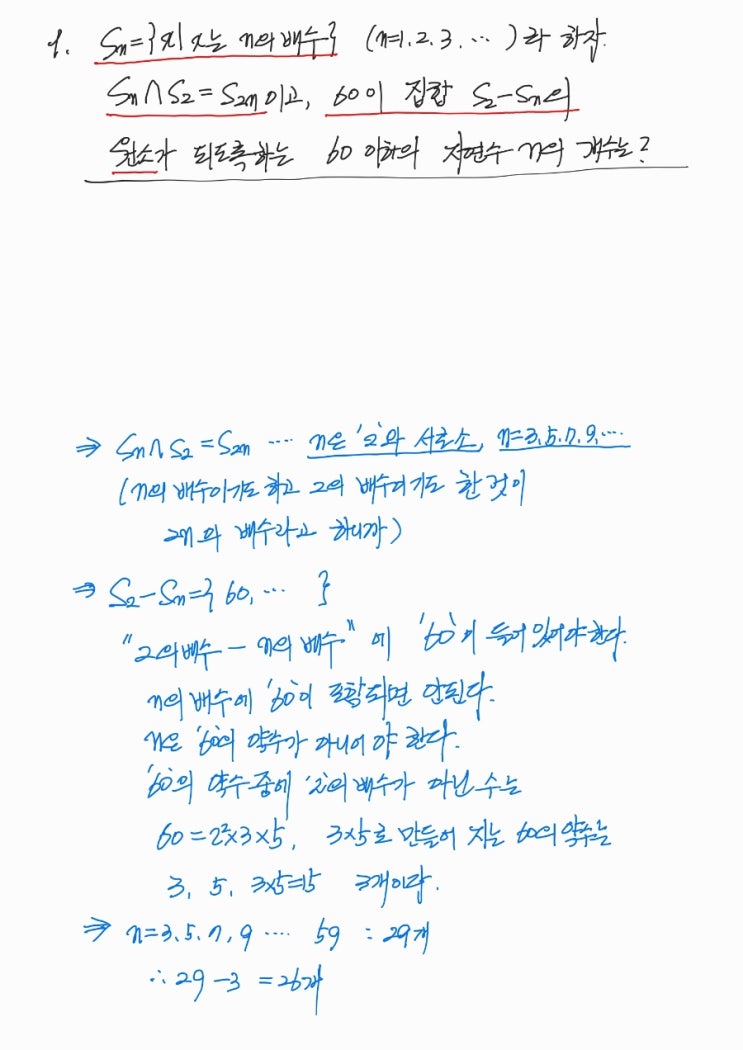 1. Sn={x|x는 n의 배수} (n=1.2.3. ⋯ )라 하자.
Sn∩S2=S2n이고, 60이 집합 S2-Sn의
원소가 되도록하는 60 이하의 자연수 n의 개수는?
⇒ Sn∩S2=S2n ⋯ n은 '2'와 서로소, n=3.5.7.9.⋯
(n의 배수이기도 하고 2의 배수이기도 한 것이
2n의 배수라고 하니까)
⇒ S2-Sn={ 60, ⋯ }
"2의배수 - n의 배수" 에 '60'이 들어있어야한다.
n의 배수에 '60'이 포함되면 안된다.
n은 '60'의 약수가 아니어야 한다.
'60'의 약수중에 '2'의 배수가 아닌 수는
60=2²×3×5, 3×5로 만들어 지는 60의 약수는
3, 5, 3×5=15 3개이다.
⇒ n=3.5.7,9 ⋯ 59 : 29개
∴ 29-3 =26개